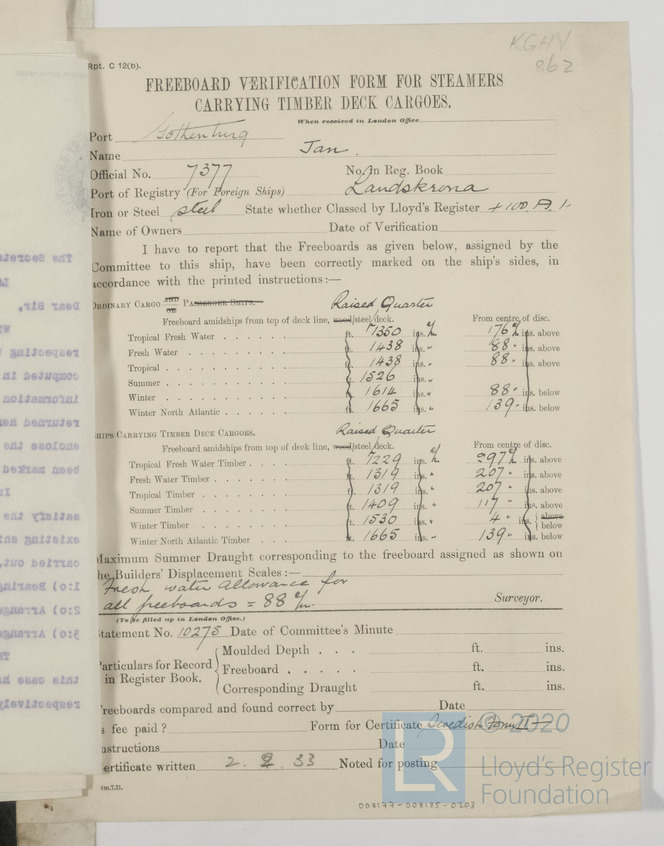 KGHV
862
Rpt. C 12(b).
FREEBOARD VERIFICATION FORM FOR STEAMERS
CARRYING TIMBER DECK CARGOES.
When received in London Office
Port Gothenburg
Name Jan.
Official No. 7377 No. in Reg. Book
Port of Registry (For Foreign Ships) Landskrona
Iron or Steel steel State whether Classed by Lloyd's Register +100.A.1.
Name of Owners Date of Verification
I have to report that the Freeboards as given below, assigned by the
Committee to this ship, have been correctly marked on the ship's sides, in
accordance with the printed instructions:—
ORDINARY CARGO AND OR PASSENGER SHIPS. Raised Quarter
Freeboard amidships from top of deck line, wood/steel/deck. From centre of disc.
Tropical Fresh Water ft. 1350 ins. 176 ins. above
Fresh Water ft. 1438 ins. 88 ins. above
Tropical ft. 1438 ins. 88 ins. above
Summer ft. 1526 ins.
Winter ft. 1614 ins. 88 ins. below
Winter North Atlantic ft. 1665 ins. 139 ins. below
SHIPS CARRYING TIMBER DECK CARGOES. Raised Quarter
Freeboard amidships from top of deck line, wood/steel/deck. From centre of disc.
Tropical Fresh Water Timber ft. 1229 ins. 297 ins. above
Fresh Water Timber ft. 1319 ins. 207 ins. above
Tropical Timber ft. 1319 ins. 207 ins. above
Summer Timber ft. 1409 ins. 117 ins. above
Winter Timber ft. 1530 ins. 4 ins. above below
Winter North Atlantic Timber ft. 1665 ins. 139 ins. below
Maximum Summer Draught corresponding to the freeboard assigned as shown on
the Builders' Displacement Scales:—
Fresh water allowance for
all freeboards = 88 m/m. Surveyor.
(To be filled up in London Office.)
Statement No. 10275 Date of Committee's Minute
Particulars for Record in Register Book.
Moulded Depth . . . ft. ins.
Freeboard . . . . . ft. ins.
Corresponding Draught ft. ins.
Freeboards compared and found correct by Date
Is fee paid ? Form for Certificate Swedish Form II
Instructions Date
Certificate written 2. 2. 33 Noted for posting
008177-008185-0203
© 2020
LR
Lloyd's Register
Foundation